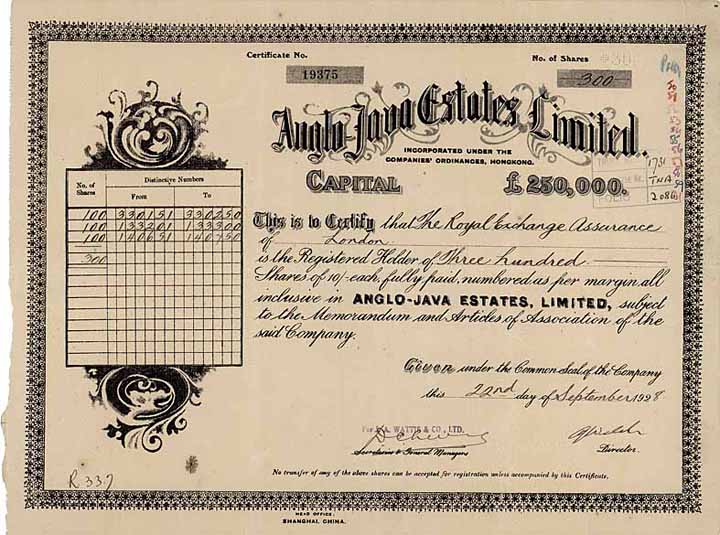 Certificate No.
19375
No. of Shares
300
Anglo-Java Estates Limited.
INCORPORATED UNDER THE
COMPANIES' ORDINANCES, HONGKONG.
CAPITAL £ 250,000.
1731
TNA
FOLIO
No. of Shares
Distinctive Numbers
From To
100 330151 330250
100 133201 133300
100 140651
300
This is to Certify that The Royal Exchange Assurance
of London
is the Registered Holder of Three hundred
Shares of 10/- each, fully paid, numbered as per margin all
inclusive in ANGLO-JAVA ESTATES, LIMITED, subject
to the Memorandum and Articles of Association of the
said Company.
Given under the Common Seal of the Company
this 22nd day of September 1928
For J.A. WATTIE & CO., LTD.
Secretaries & General Managers
Director.
No transfer of any of the above shares can be accepted for registration unless accompanied by this Certificate.
R 337
HEAD OFFICE,
SHANGHAI, CHINA.